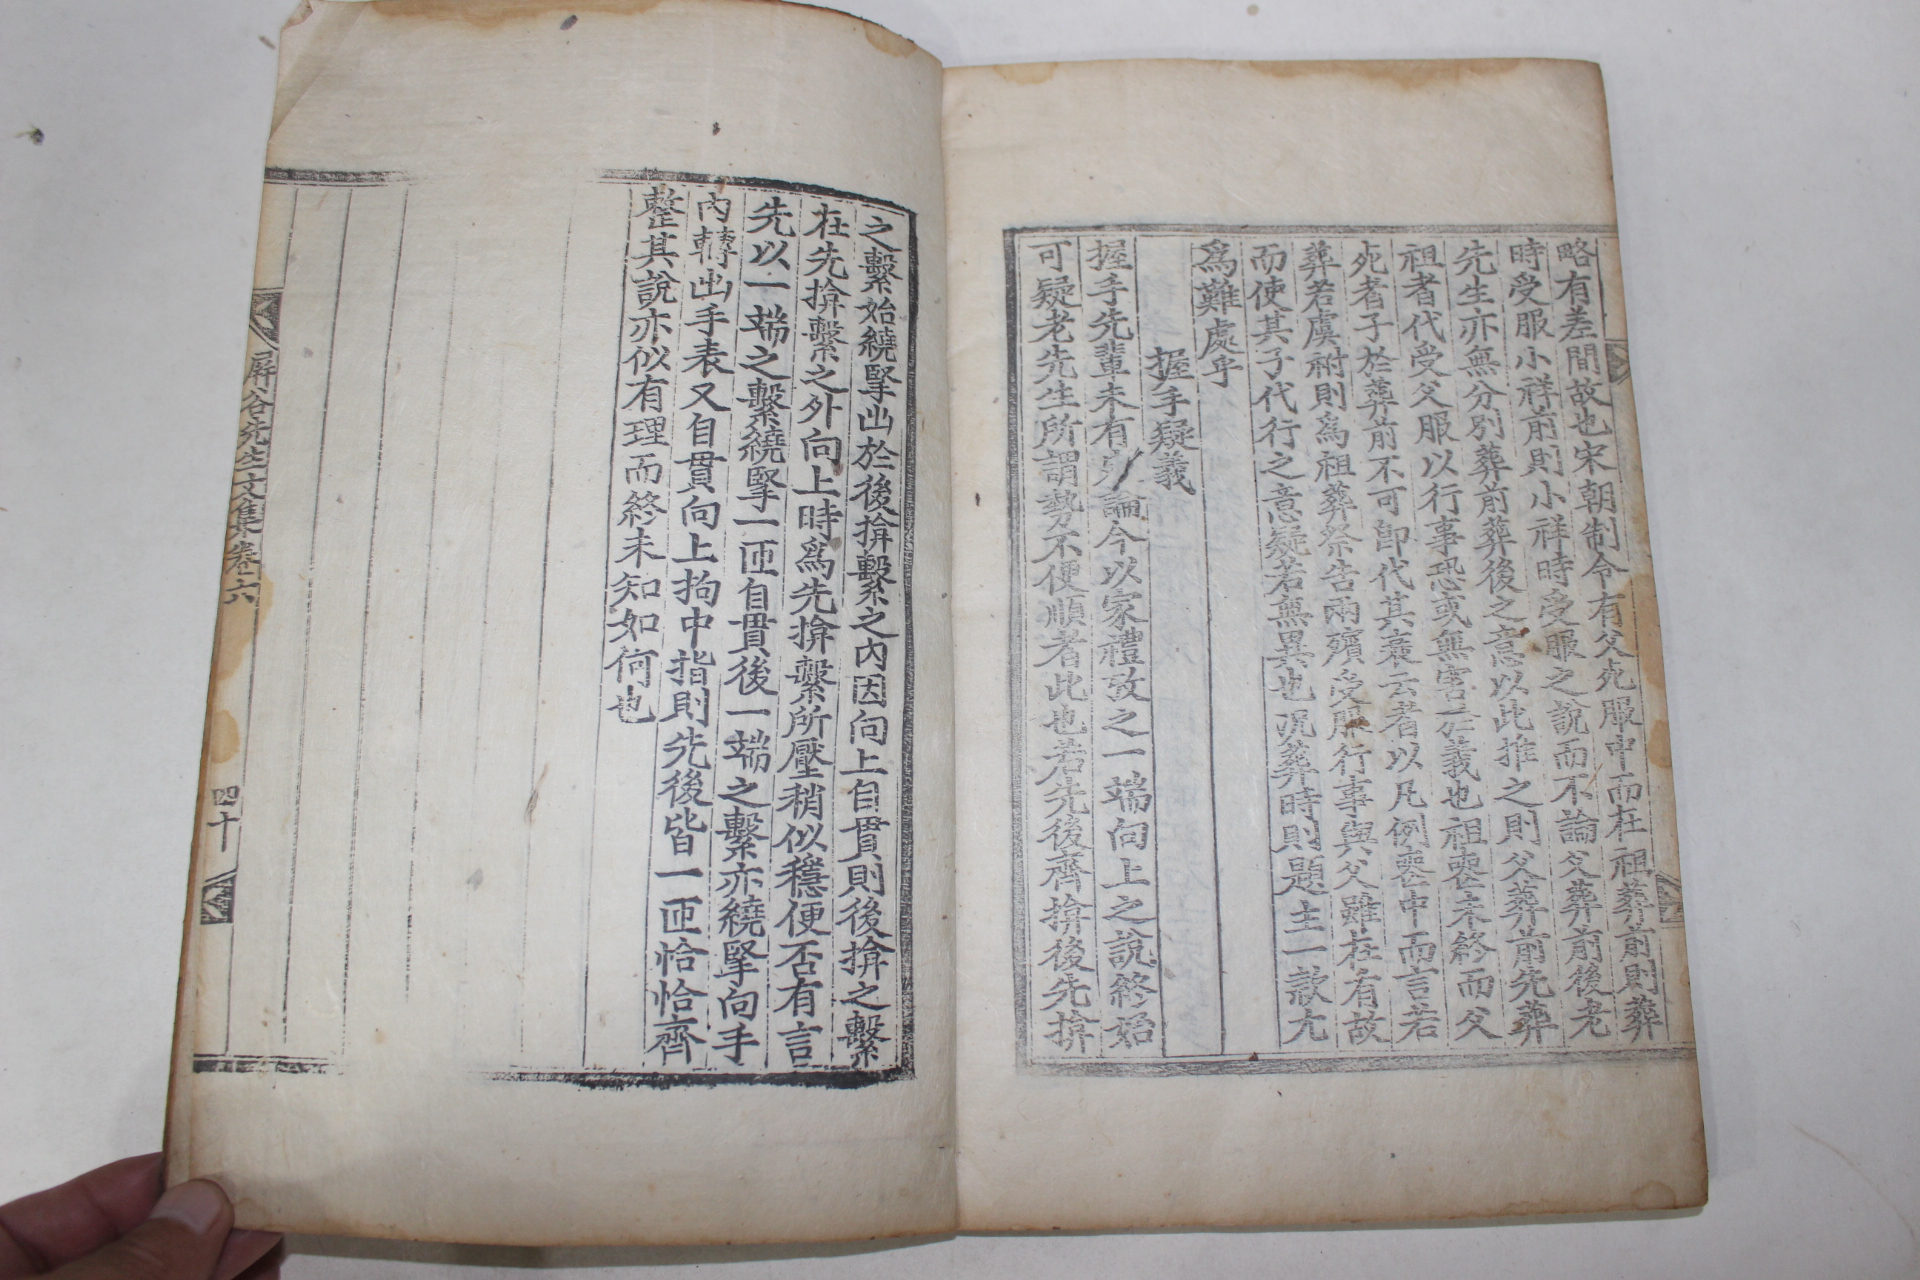 略有差間故也宋朝制令有父死服中而在祖葬前則葬
時受服小祥前則小祥時受服之說而不論父葬前後老
先生亦無分別葬前葬後之意以此推之則父葬前先葬
祖者代受父服以行事恐或無害於義也祖喪未終而父
死者子於葬前不可卽代其衰云者以凡例喪中而言若
葬若虞祔則爲祖葬祭告兩殯受服行事與父雖在有故
而使其子代行之意疑若無異也况葬時則題主一款尤
爲難處乎
握手疑義
握手先輩未有論今以家禮攷之一端向上之說終始
可疑老先生所謂勢不便順者此也若先後齊揜後先揜
之繫始繞掔出於後揜繫之內因向上自貫則後揜之繫
在先揜繫之外向上時爲先揜繫所壓稍似穩便否有言
先以一端之繫繞掔一匝自貫後一端之繫亦繞掔向手
內轉出手表又自貫向上拘中指則先後皆一匝恰恰齊
整其說亦似有理而終未知如何也
屛谷先生文集卷六
四十